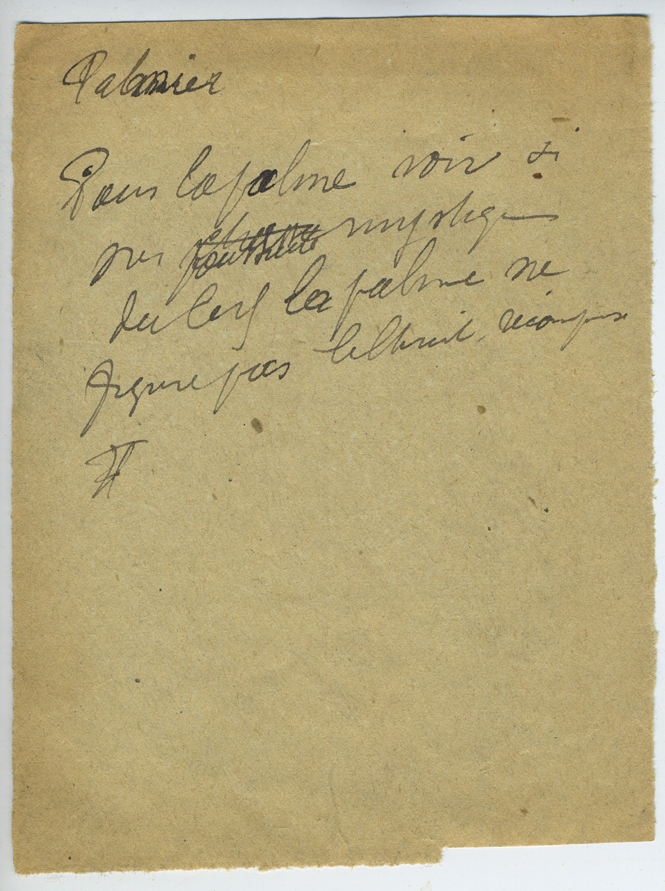 Palmier
Pour la palme voir si
sur mystique
du Cerf la palme ne
figure pas récompense